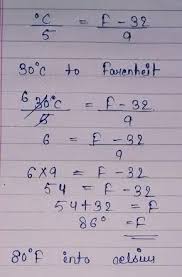 °C/5 = F - 32/9
30°C to Farenheit
6 30°C/5 = F - 32/9
6 = F - 32/9
6 x 9 = F - 32
54 = F - 32
54 + 32 = F
86° = F
80°F into celsius